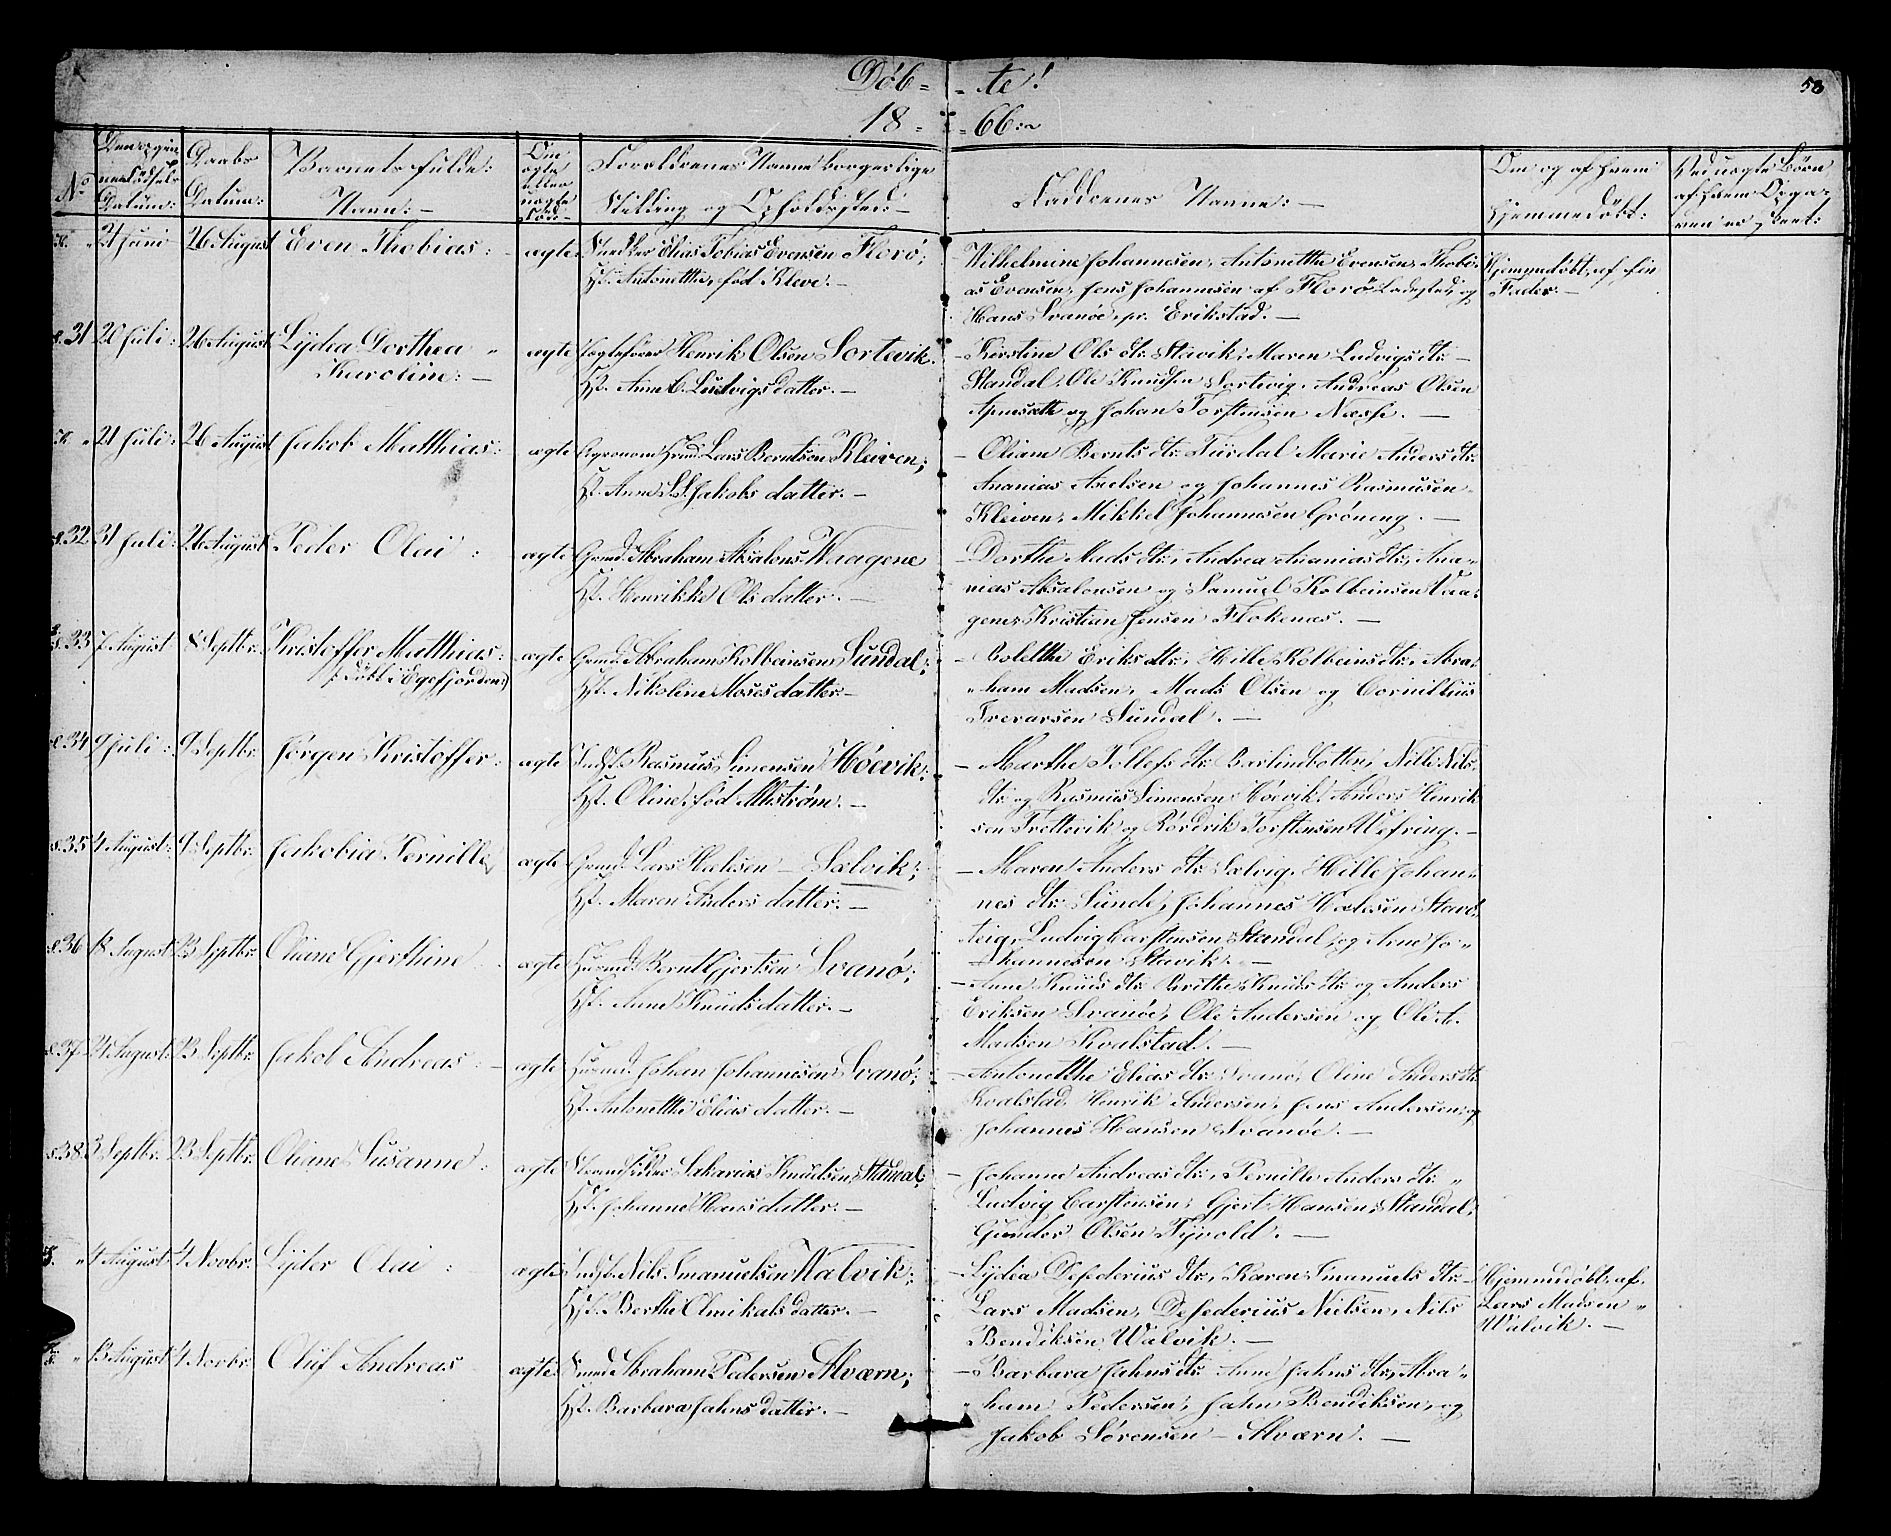 Døb- -te!
58
18- -66:
No
Den egen
Fødsels
Datum:
Daabs
Datum:
Barnets fulde:
Navn:-
Om
ægte
eller
uægte
Forældrenes Navne borgerlige
Stilling og Opholdssted:-
Faddernes Navne:-
Om og af hvem
hjemmedøbt:
Ved uægte Børn
af hvem
21 Juni 26 August Even Thobias: ægte Elias Tobias Evensen Florø;
H. Antonetthe, fød Kleve.-
Wilhelmine Johannesen, Antonetthe Evensen, Thobi-
as Evensen, Jens Johannesen af Florø Ladested, og
Hans Svanøe, pr. Erikstad.-
Hjemmedøbt af sin
Fader.-
31 20 Juli: 26 August Lydia Dorthea
Karoline:-
ægte Henrik Olsen Sortevik.
H. Anne C. Ludvigsdatter.-
- Kirstine Ols dtr. Stavik, Maren Ludvigs dtr.-
Standal, Ole Knudsen Sortevig, Andreas Olsen
og Johan Torstensen Næsse.-
21 Juli: 26 August Jakob Matthias: ægte Agronom Lars Berntsen Kleiven;
H. Anne S. Jakobsdatter.-
- Oliam Bernts dtr. Marie Anders dtr.
Ananias Axelsen og Johannes Rasmusen
Kleiven, Mikkel Johannesen Grøneng.-
32 31 Juli: 26 August Peder Olai: ægte Grmd. Abraham Absalons Waagene
H. Henrikke Olsdatter.-
- Dorthe Mads dtr., Andrea Ananias dtr., Ana-
nias Absalonsen og Samuel Kolbeinsen Vaa-
gene, Kristian Jensen Flokenæs.-
33 7 August 8 Septbr. Kristoffer Matthias:
døbt i Egefjorden
ægte Grmd. Abraham Kolbeinsen Sundal;
H. Nikoline Mosesdatter.-
- Bolethe Eriks dtr., Hille Kolbeins dtr., Abra-
ham Madsen, Mads Olsen og Cornillius
Iverarsen Sundal.-
34 9 Juli: 9 Septbr. Jørgen Kristoffer: ægte Indst. Rasmus Simensen Høevik;
H. Oline, fød Altstrøm.-
- Marthe Tollefs dtr. Berlindbotten, Nille Nils
dtr. og Rasmus Simensen Høevik, Anders Henrik
sen Trettevik og Rørdrik Torstensen Wefring.-
35 4 August: 9 Septbr. Jakobia Pernille ægte Grmd. Lars Hælsen - Sælvik;
H. Maren Andersdatter.-
- Maren Anders dtr. Sælvig, Hille Johan-
nes dtr. Sunde, Johannes Hælesen Stav-
teig, Ludvig Carstensen Standal, og Arne Jo-
hannesen Stavik.-
36 18 August 23 Septbr. Oliane Gjerthine ægte Husmd. Bernt Gjertsen Svanø;
H. Anne Knudsdatter.-
- Anne Knuds dtr. Brithe Knuds dtr. og Anders
Eriksen Svanøe, Ole Andersen og Ole A.
Madsen Kvalstad.-
37 24 August 23 Septbr. Jakob Andreas:- ægte Husmd. Johan Johannesen Svanø;
H. Antonetthe Eliasdatter.-
- Antonetthe Elias dtr. Svanø, Oline Anders dtr.
Kvalstad, Henrik Andersen, Jens Andersen, og
Johannes Hansen Svanøe.-
38 3 Septbr. 23 Septbr. Oliane Susanne: ægte Strandsidder Sakarias Knudsen Standal;
H. Johanne Hansdatter.-
- Johanne Andreas dtr., Pernille Anders dtr.
Ludvig Carstensen, Gjert Hansen, Standal,
Gunder Olsen Tyvold.-
4 August 4 Novbr. Lyder Olai: ægte Indst. Nils Imanuelsen Walvik;
H. Berthe Olmikalsdatter.-
- Lydia Defederius dtr., Karen Imanuels dtr.-
Lars Madsen, Defederius Nielsen, Nils
Bendiksen Walvik.-
Hjemmedøbt, af
Lars Madsen
Walvik.-
13 August 4 Novbr. Oluf Andreas ægte Abraham Pedersen Alværn;
H. Barbara Jahnsdatter.-
- Barbara Jahns dtr. Anne Jahns dtr., Abra-
ham Pedersen, Jahn Bendiksen, og
Jakob Sørensen - Alværn.-